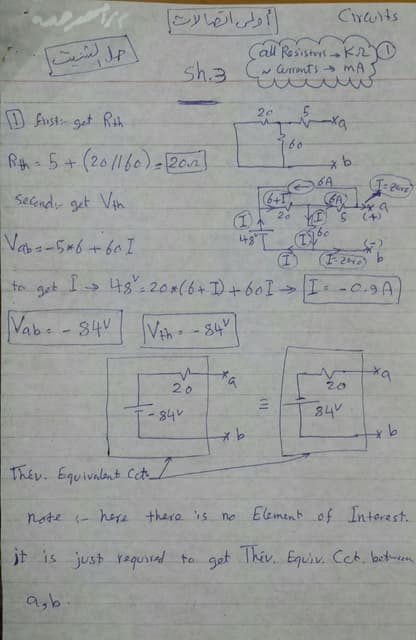 Circuits
أولى اتصالات
حل الشيت
Sh.3
all Resistors → KΩ
~ Currents → mA
1
1 first:- get Rth
Rth = 5 + (20//60) = 20Ω
20 5 a
60
b
second:- get Vth
6A
I = zero
6+I 6A a
20 5 (+)
I I 60
48V I (-)
I I = zero b
Vab = -5*6 + 60I
to get I → 48V = 20*(6+I) + 60I → I = -0.9A
Vab = -84V Vth = -84V
20 a ≡ 20 a
-84V 84V
b b
Thév. Equivalent Cct.
note :- here there is no Element of Interest.
it is just required to get Thév. Equiv. Cct. between
a,b.